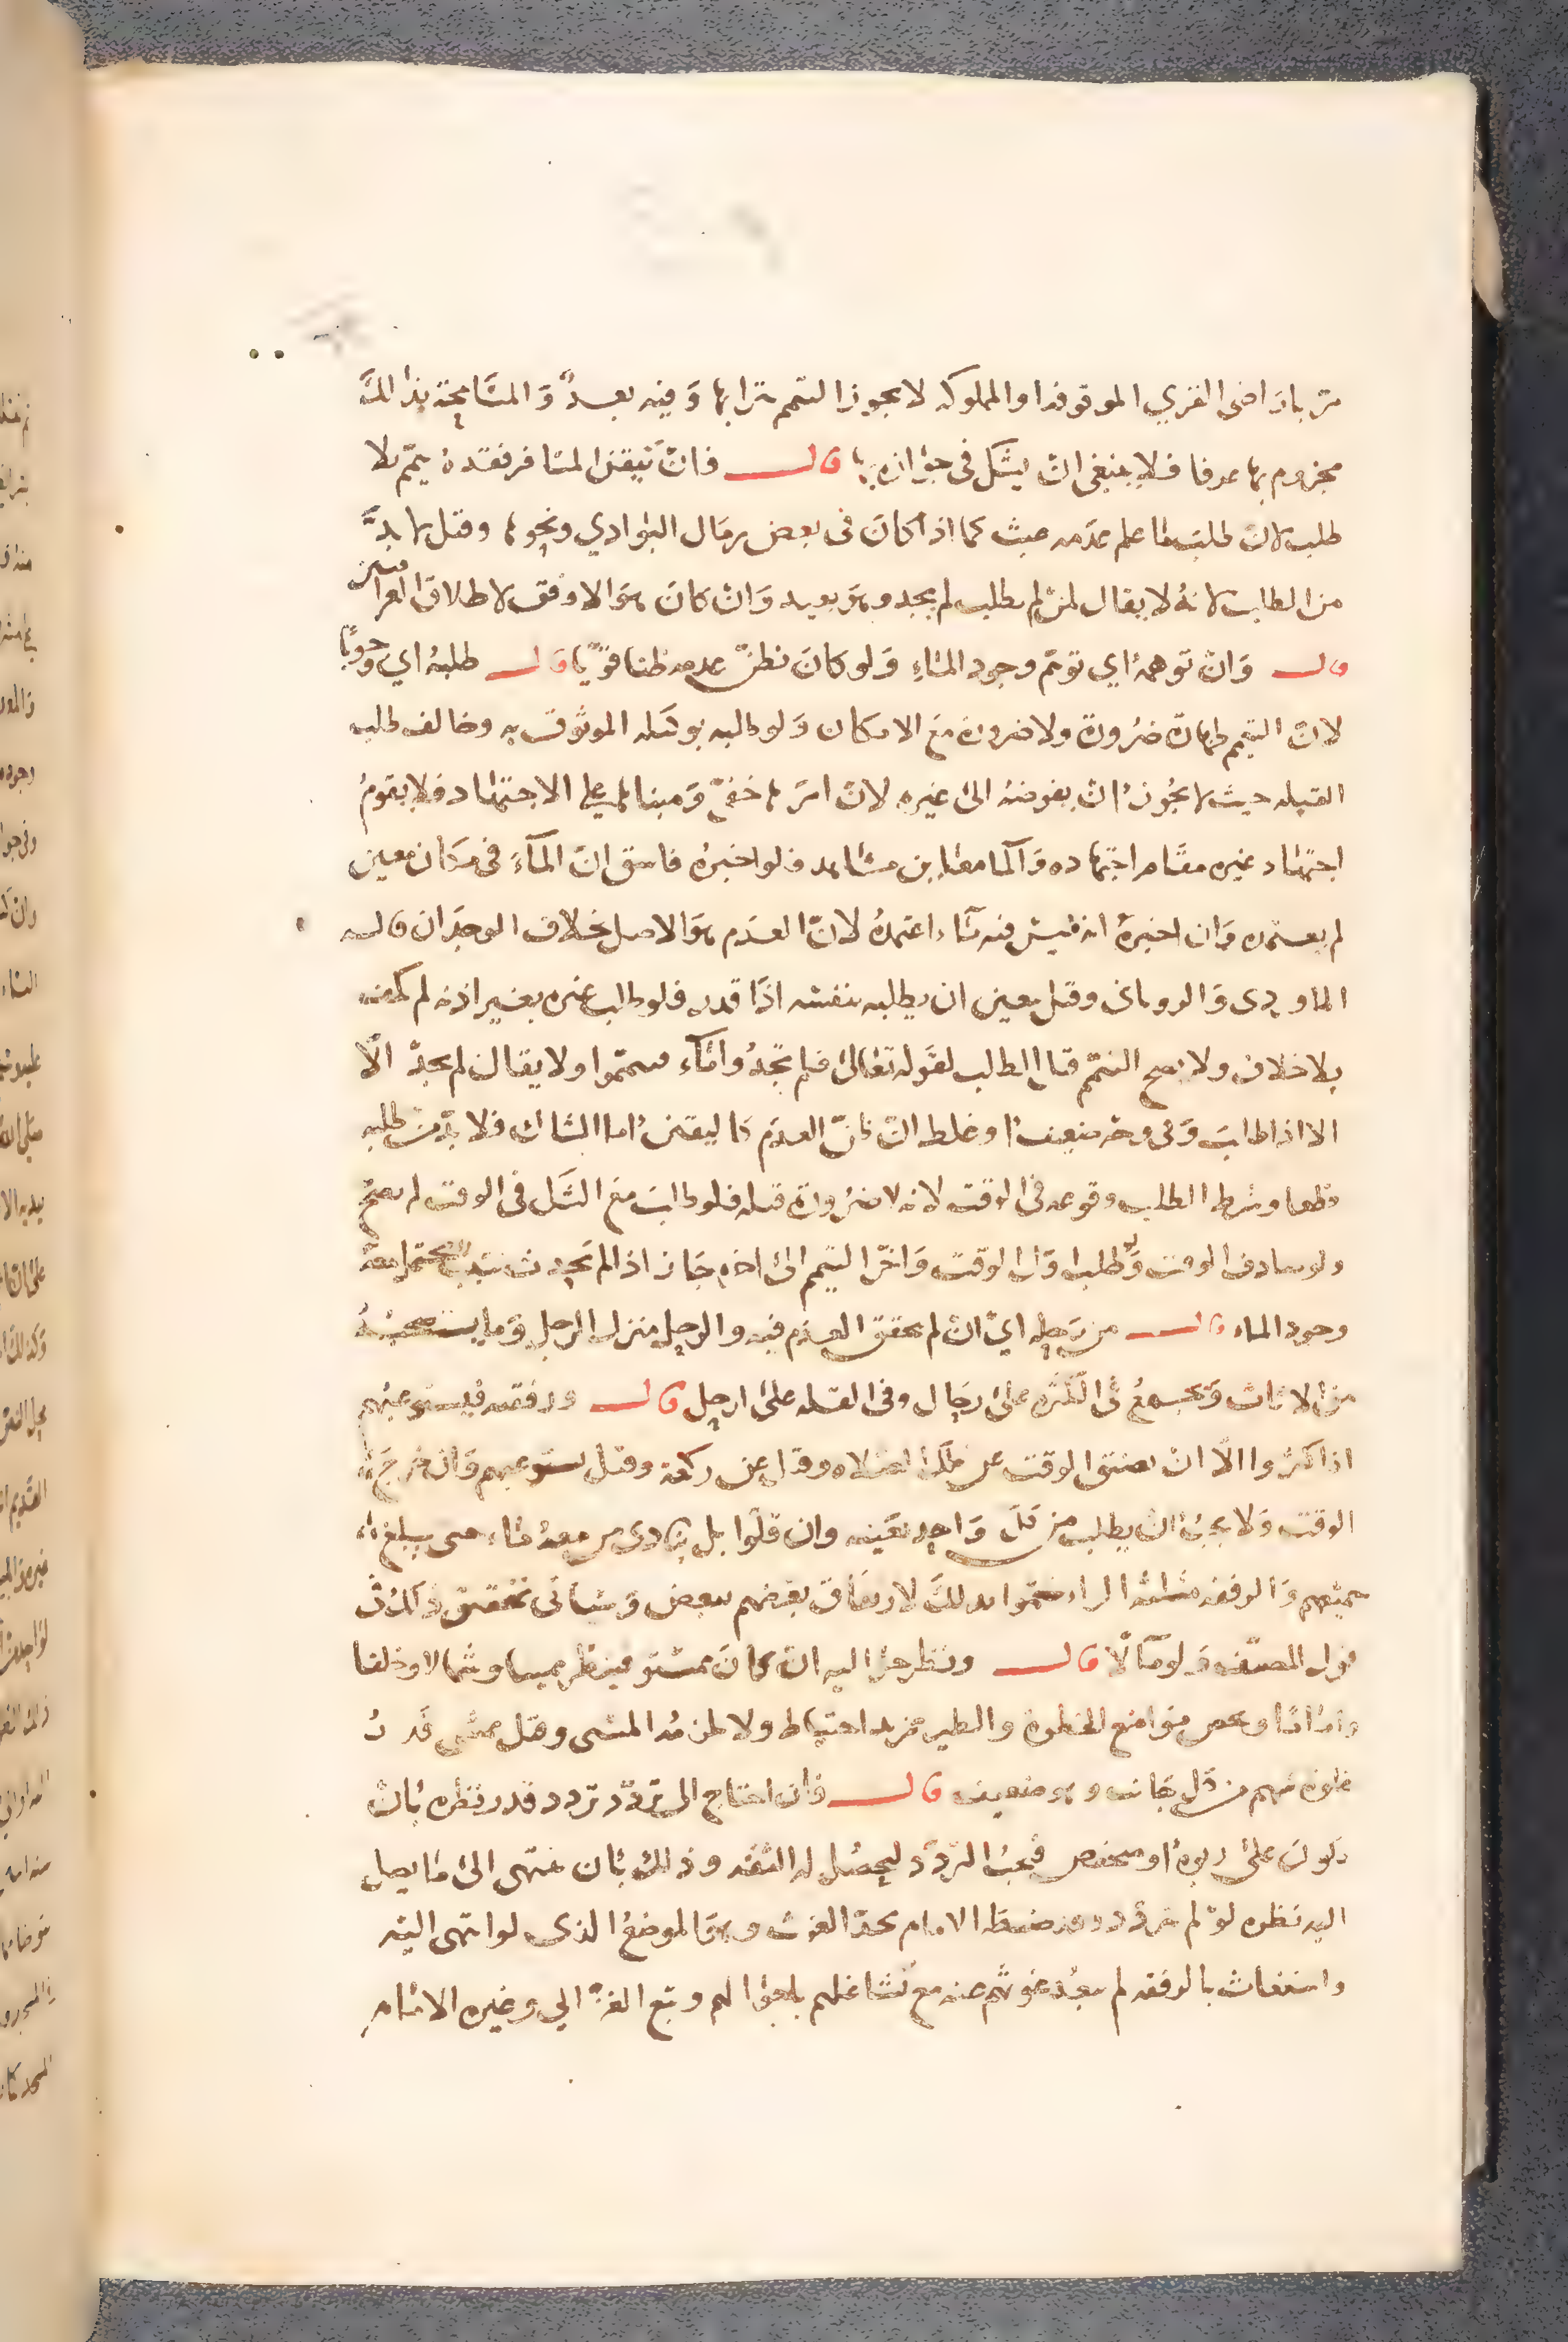 مر باراضى القري الموقوفه او المملوكه لا يجوز التيمم بترابها وَفيه بعدٌ وَالمسَامحة بذالكَ
مجزوم بها عرفا فلا ينبغى ان يشكل فى جوازه بها قال فان تيقن المسافر فقده تيمّم بلا
طلب لان طلب ما علم عدَمه عبث كما اذا كان فى بعض رمَال البوادي ونحوها وقيل لا بدَّ
من الطلب لانهُ لا يقال لمن لم يطلب لم يجد وهو بعيد وَان كانَ هوَ الاوفق لاطلاق العراقيين
قال وَان توهمهُ اي توهّم وجود الماءِ وَلو كانَ يظنّ عدمه ظنا قويّا قال طلبهُ اي وجوبًا
لانّ التيمم طهَارَة ضرُورَة ولا ضرورة معَ الامكان وَلو طلبه بوكيله الموثوق به وخالف طلب
القبله حيث لا يجُوزُ ان يفوضهُ الىٰ غيره لان امرَها خفىّ وَمبناها على الاجتهاد فلا يقومُ
اجتهاد غيره مقَام اجتهاده وَالما معاين مشاهد فلو اخبرهُ فاسق انّ المآءَ فى مكان معين
لم يعتمده وَان اخبرهُ انه ليس فيه مَاء اعتمدهُ لانّ العدَم هوَ الاصل بخلاف الوجدَان قاله
الماوردى وَالرويانى وقيل يتعين ان يطلبه بنفسه اذَا قدر فلو طلب غيره بغير اذنه لم يكفه
بلا خلاف ولا يصح التيمّم قبل الطلب لقَوله تعَالىٰ فلم تجدُوا مَاء فتيمّموا ولا يقال لم يجدّ الّا
الا اذا طلبَ وَفى وجه ضعيف او غلط انّ ظانّ العدَم كالمتيقنُ اما الشاك فلا بُدّ من طلبه
قطعا وشرط الطلب وقوعه فى الوقت لانه لا ضرُورة قبله فلو طلبَ معَ الشك فى الوقت لم يصحّ
ولو صادف الوقت وَلو طلب اوّل الوقت وَاخّر التيمم الى اخره جَاز اذا لم يَحدث سبب يحتمل معهُ
وجود الماء قال من رَحله ايّ ان لم يحقق العدَم فيه والرحل منزل الرجل وَما يستصحبهُ
من الاثاث وَيجمعُ فى الكثره علىٰ رحَال وفى القله علىٰ ارحل قال ورفقته فيستوعبهم
اذا كثرُوا الّا ان يضيق الوقت عن تلك الصَلاه وقيل عن ركعة وقيل يستوعبهم وَان خرجَ
الوقت وَلا يجبُ ان يطلب من كلّ وَاحد بعَينه وان قلّوا بل ينادى من معهُ مَاء حتى يبلغ
جميعهم وَالرفقه مثلثه الراء سمّوا بذلكَ لارتفَاق بعَضهم ببعض وَسيَأتى تحقيق ذلكَ فى
قول المصنّف وَلو مآلًا قال ونظر حوَاليه ان كانَ بمستو فينظر يمينا وشمالا وخلفا
وامَامًا ويخص موَاضع الخضرة والطير بمزيد احتياط ولا يلزمهُ المشى وقيل يمشى قَدرَ
غلوة سهم من كل جانب وهو ضعيف قال فان احتاج الى ترَدّد تردد قدر نظره بَان
يكونَ علىٰ ربوة او منخفض فيجبُ الترَدّد ليحصُل له الثقه وذلكَ بان ينتهى الىٰ مَا يصل
اليه نظره لوْ لم يترَدّد وقد ضبطَه الامام بحدّ الغوث وهوَ الموضعُ الذى لو انتهى اليه
واستغاث بالرفقه لم يبعُد غوثهم عنه مع تشاغلهم باحوَالهم وتبع الغزّالي وغيره الامَامِ